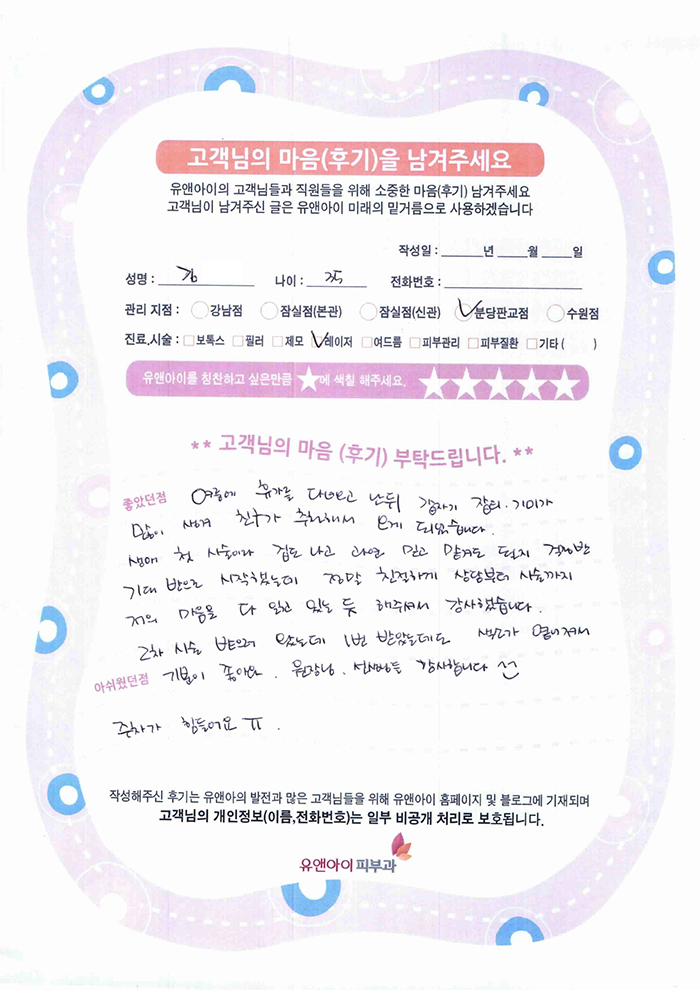 고객님의 마음(후기)을 남겨주세요
유앤아이의 고객님들과 직원들을 위해 소중한 마음(후기) 남겨주세요
고객님이 남겨주신 글은 유앤아이 미래의 밑거름으로 사용하겠습니다
작성일 : 년 월 일
성명 : 김 나이 : 35 전화번호 :
관리 지점 : 강남점 잠실점(본관) 잠실점(신관) 분당판교점 수원점
진료,시술 : 보톡스 필러 제모 레이저 여드름 피부관리 피부질환 기타 ( )
유앤아이를 칭찬하고 싶은만큼 ★에 색칠 해주세요, ★★★★★
** 고객님의 마음 (후기) 부탁드립니다. **
좋았던점 여름에 휴가를 다녀오고 난뒤 갑자기 잡티·기미가
많이 생겨 친구가 추천해서 오게 되었습니다.
생애 첫 시술이라 겁도 나고 과연 믿고 맡겨도 될지 걱정반
기대 반으로 시작했는데 정말 친절하게 상담부터 시술까지
저의 마음을 다 알고 있는 듯 해주셔서 감사했습니다.
2차 시술 받으러 왔는데 1번 받았는데도 색소가 옅어져서
아쉬웠던점 기분이 좋아요. 원장님, 선생님들 감사합니다
주차가 힘들어요 ㅠ.
작성해주신 후기는 유앤아의 발전과 많은 고객님들을 위해 유앤아이 홈페이지 및 블로그에 기재되며
고객님의 개인정보(이름,전화번호)는 일부 비공개 처리로 보호됩니다.
유앤아이피부과